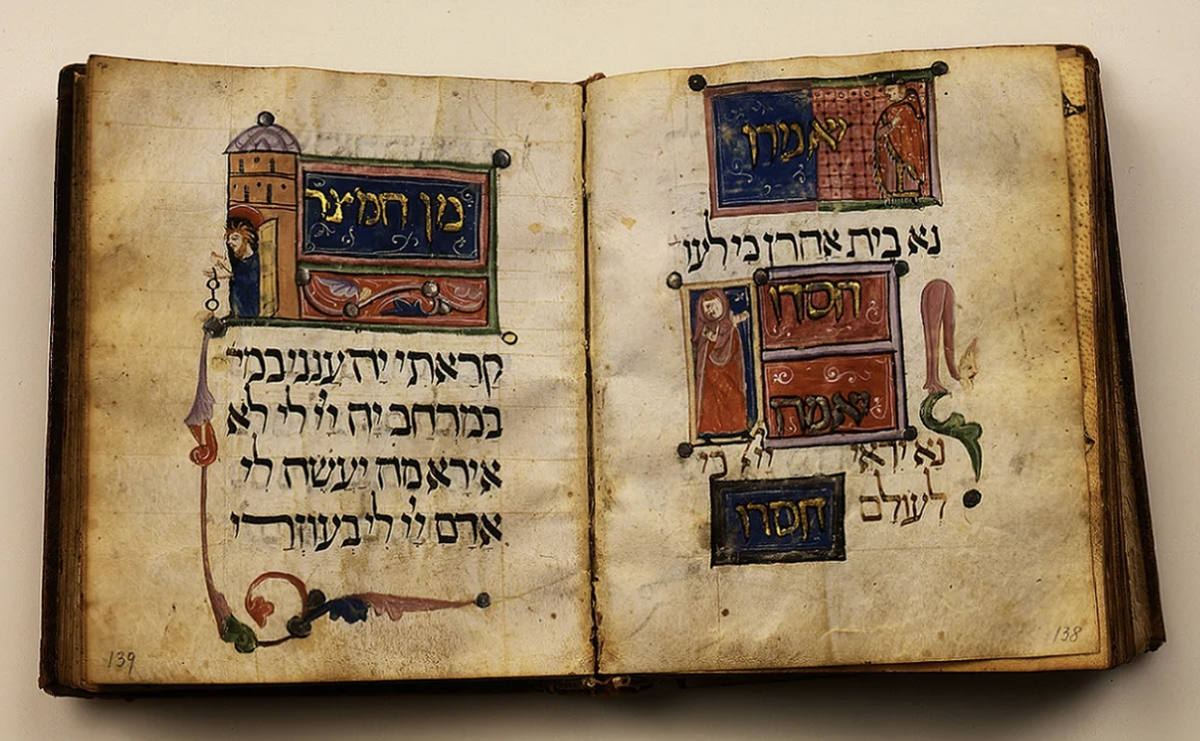 יאמרו
נא בית אהרן כי לעו
חסדו
נא יראי יי כי
לעולם חסדו
138
מן המצר
קראתי יה ענני במי
במרחב יה יי לי לא
אירא מה יעשה לי
אדם יי לי בעוזרי
139